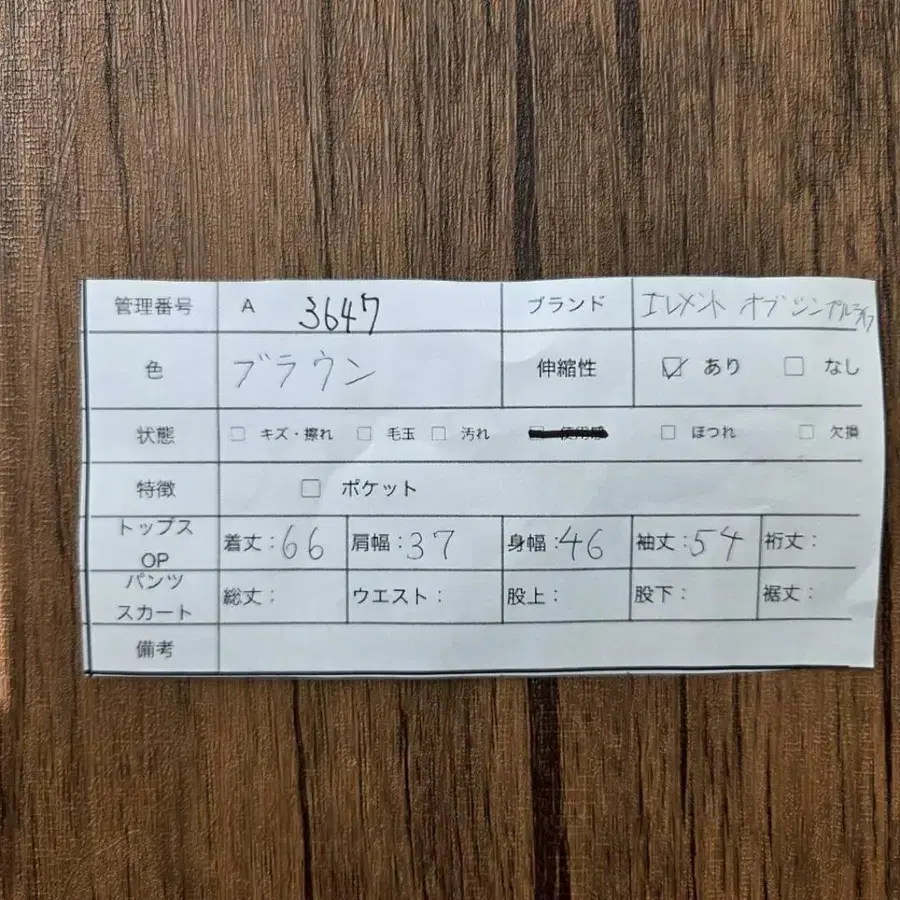 管理番号 A 3647 ブランド エレメント オブ シンプルライフ
色 ブラウン 伸縮性 ☑ あり ☐ なし
状態 ☐ キズ・擦れ ☐ 毛玉 ☐ 汚れ ☐ 使用感 ☐ ほつれ ☐ 欠損
特徴 ☐ ポケット
トップス
OP
着丈:66 肩幅:37 身幅:46 袖丈:54 裄丈:
パンツ
スカート
総丈: ウエスト: 股上: 股下: 裾丈:
備考